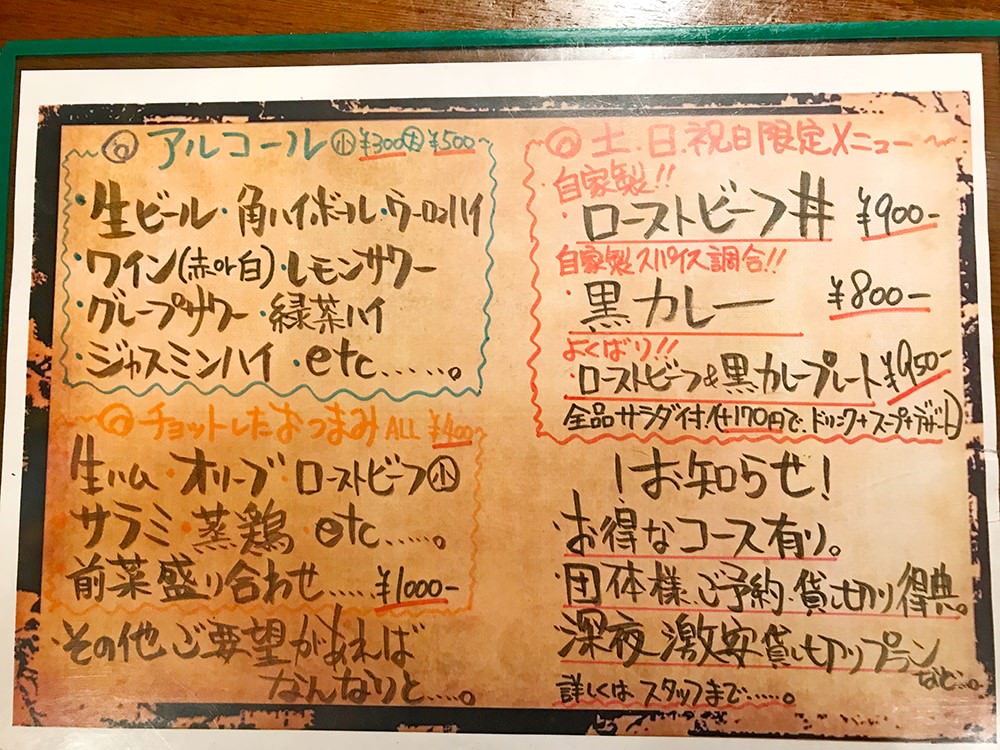 アルコール 小¥300 大¥500
・生ビール・角ハイボール・ウーロンハイ
・ワイン(赤or白)・レモンサワー
・グレープサワー・緑茶ハイ
・ジャスミンハイ・etc......。
チョットしたおつまみ ALL ¥400
生ハム・オリーブ・ローストビーフ小
サラミ・蒸鶏・etc.....。
前菜盛り合わせ..... ¥1000-
・その他ご要望があれば
なんなりと.....。
土.日.祝日限定メニュー
自家製!!
・ローストビーフ丼 ¥900-
自家製スパイス調合!!
・黒カレー ¥800-
よくばり!!
・ローストビーフ&黒カレープレート ¥950-
全品サラダイ付!(+170円で、ドリンク+スープ+デザート)
!お知らせ!
・お得なコース有り。
・団体様、ご予約、貸し切り得典。
・深夜激安貸し切りプラン
など...。
詳しくはスタッフまで.....。